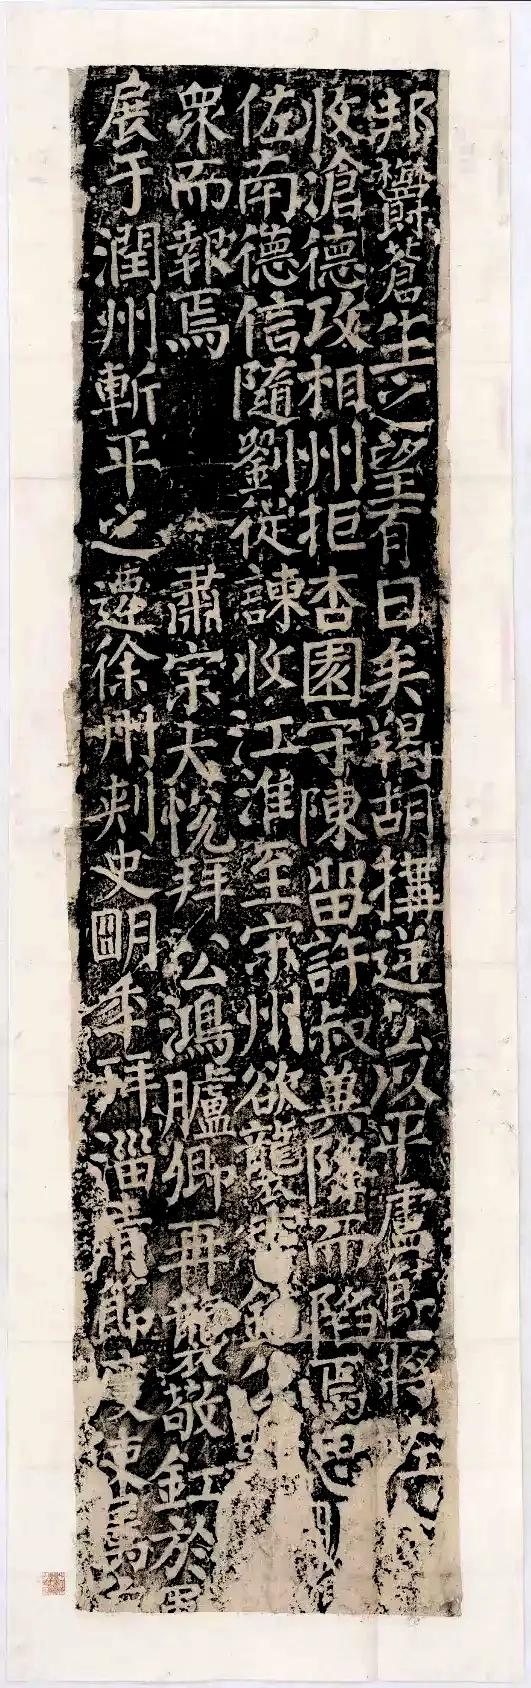 邦欝蒼生之望有日矣羯胡搆逆公以平盧節將
收滄德攻相州拒杏園守陳留許叔兾降而陷焉思明
佐南德信隨劉從諫收江淮至宋州欲襲李銑公
衆而報焉 肅宗大悅拜公鴻臚卿再襲敬釭於
展于潤州斬平之遷徐州刾史明年拜淄青節度